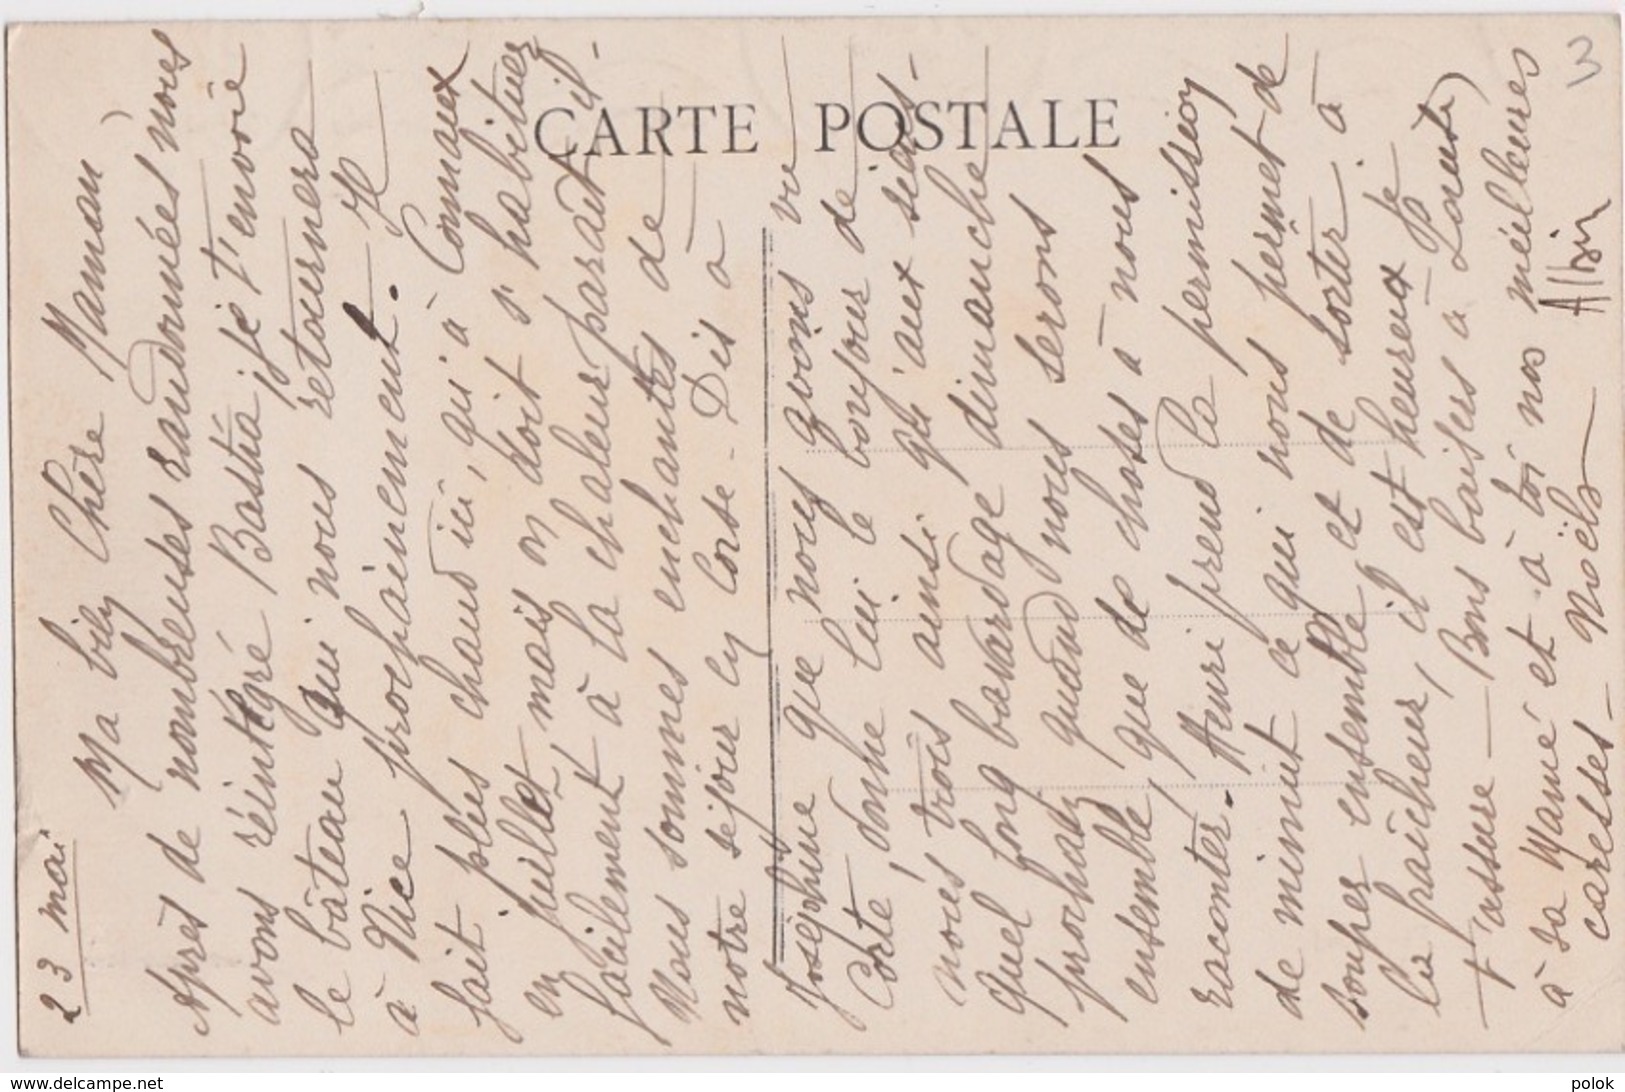 CARTE POSTALE
3
23 mai
Ma bien Chère Maman
Après de nombreuses randonnées nous
avons réintégré Bastia, je t'envoie
le bâteau qui nous retournera
à Nice prochainement. Il
fait plus chaud ici, qu'à Connaux
en juillet mais on doit s'habituer
facilement à la chaleur paraît-il -
Nous sommes enchantés de
notre séjour en Corse - Dis à
Joséphine que nous avons vu
Corte, donne lui le bonjour de
nous trois ainsi qu'aux siens -
Quel long bavardage dimanche
prochain quand nous serons
ensemble, que de choses à nous
raconter. Henri prend la permission
de minuit ce qui nous permet de
souper ensemble et de sortir à
la fraîcheur, il est heureux je
t'assure - Bons baisers à
à sa Mamé et à toi nos meilleures
caresses - Noëls